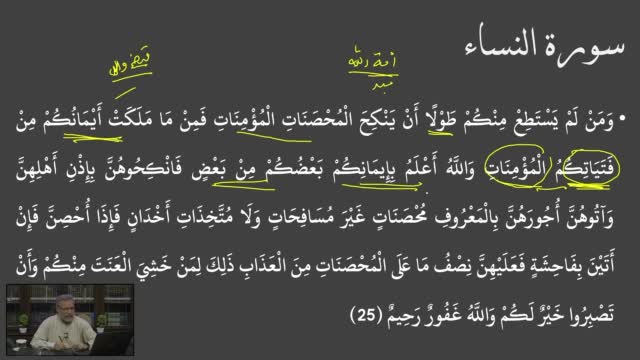 سورة النساء
أمة الله
• وَمَنْ لَمْ يَسْتَطِعْ مِنْكُمْ طَوْلًا أَنْ يَنْكِحَ الْمُحْصَنَاتِ الْمُؤْمِنَاتِ فَمِنْ مَا مَلَكَتْ أَيْمَانُكُمْ مِنْ
فَتَيَاتِكُمُ الْمُؤْمِنَاتِ وَاللَّهُ أَعْلَمُ بِإِيمَانِكُمْ بَعْضُكُمْ مِنْ بَعْضٍ فَانْكِحُوهُنَّ بِإِذْنِ أَهْلِهِنَّ
وَآتُوهُنَّ أُجُورَهُنَّ بِالْمَعْرُوفِ مُحْصَنَاتٍ غَيْرَ مُسَافِحَاتٍ وَلَا مُتَّخِذَاتِ أَخْدَانٍ فَإِذَا أُحْصِنَّ فَإِنْ
أَتَيْنَ بِفَاحِشَةٍ فَعَلَيْهِنَّ نِصْفُ مَا عَلَى الْمُحْصَنَاتِ مِنَ الْعَذَابِ ذَلِكَ لِمَنْ خَشِيَ الْعَنَتَ مِنْكُمْ وَأَنْ
تَصْبِرُوا خَيْرٌ لَكُمْ وَاللَّهُ غَفُورٌ رَحِيمٌ (25)